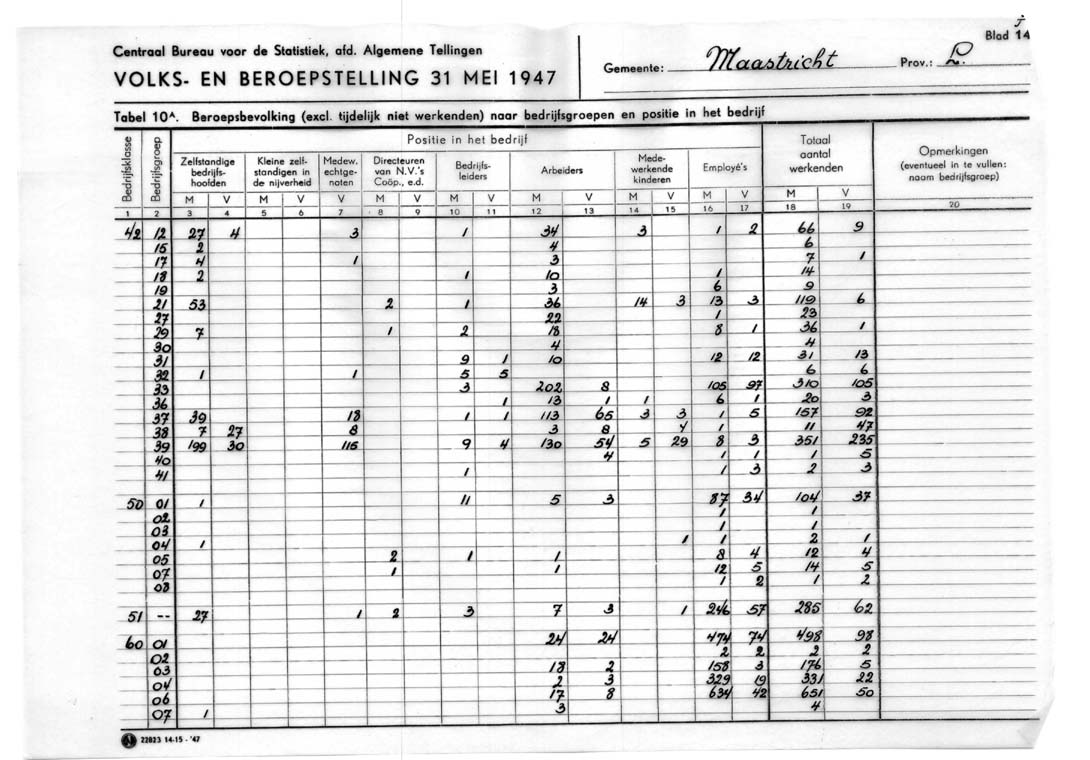 J
Blad 14
Centraal Bureau voor de Statistiek, afd. Algemene Tellingen
VOLKS- EN BEROEPSTELLING 31 MEI 1947
Gemeente: Maastricht Prov.: L.
Tabel 10A. Beroepsbevolking (excl. tijdelijk niet werkenden) naar bedrijfsgroepen en positie in het bedrijf
Bedrijfsklasse Bedrijfsgroep Positie in het bedrijf Totaal aantal werkenden Opmerkingen (eventueel in te vullen: naam bedrijfsgroep)
Zelfstandige bedrijfs-hoofden Kleine zelf-standigen in de nijverheid Medew. echtge-noten Directeuren van N.V.'s Coöp., e.d. Bedrijfs-leiders Arbeiders Mede-werkende kinderen Employé's
M V M V V M V M V M V M V M V M V
1 2 3 4 5 6 7 8 9 10 11 12 13 14 15 16 17 18 19 20
42 12 27 4 3 1 34 3 1 2 66 9
15 2 4 6
17 4 1 3 7 1
18 2 1 10 1 14
19 3 6 9
21 53 2 1 36 14 3 13 3 119 6
27 22 1 23
29 7 1 2 18 8 1 36 1
30 4 4
31 9 1 10 12 12 31 13
32 1 1 5 5 6 6
33 3 202 8 105 97 310 105
36 1 13 1 1 6 1 20 3
37 39 18 1 1 113 65 3 3 1 5 157 92
38 7 27 8 3 8 4 1 11 47
39 199 30 115 9 4 130 54 5 29 8 3 351 235
40 4 1 1 1 5
41 1 1 3 2 3
50 01 1 11 5 3 87 34 104 37
02 1 1
03 1 1
04 1 1 1 2 1
05 2 1 1 8 4 12 4
07 1 1 12 5 14 5
08 1 2 1 2
51 -- 27 1 2 3 7 3 1 246 57 285 62
60 01 24 24 474 74 498 98
02 2 2 2 2
03 18 2 158 3 176 5
04 2 3 329 19 331 22
06 17 8 634 42 651 50
07 1 3 4
22823 14-15 - '47